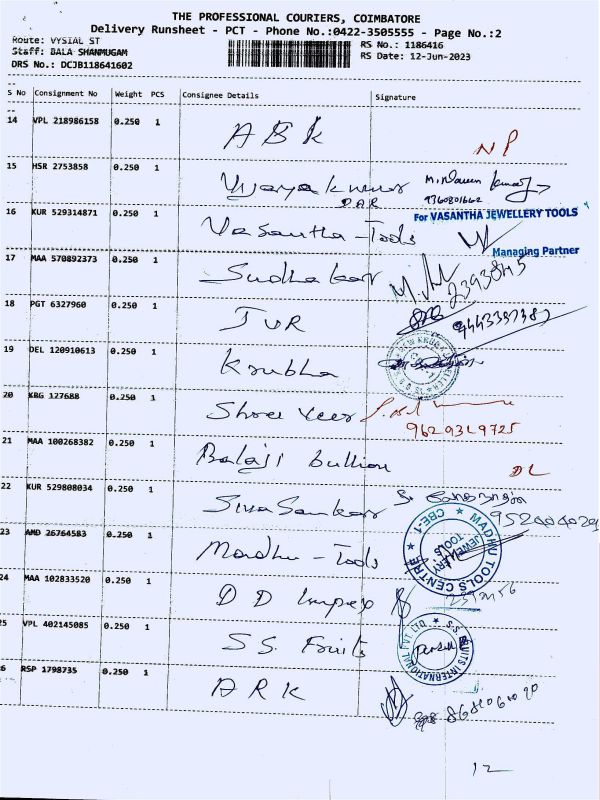 THE PROFESSIONAL COURIERS, COIMBATORE
Delivery Runsheet - PCT - Phone No.:0422-3505555 - Page No.:2
Route: VYSIAL ST
Staff: BALA SHANMUGAM
DRS No.: DCJB118641602
RS No.: 1186416
RS Date: 12-Jun-2023
S No Consignment No Weight PCS Consignee Details Signature
14 VPL 218986158 0.250 1 A B K NP
15 HSR 2753858 0.250 1 Vijayakumar
D.A.R 9360801662
16 KUR 529314871 0.250 1 Vasantha-Tools For VASANTHA JEWELLERY TOOLS
Managing Partner
17 MAA 570892373 0.250 1 Sudhakar 2393845
18 PGT 6327960 0.250 1 JVR
19 DEL 120910613 0.250 1 Krubha
20 KRG 127688 0.250 1 Shree Veer
9629319725
21 MAA 100268382 0.250 1 Balaji Bullion DL
22 KUR 529808034 0.250 1 Siva Sankar
23 AMD 26764583 0.250 1 Madhu-Tools MADHU TOOLS CENTRE CBE-1 JEWELLERY TOOLS
24 MAA 102833520 0.250 1 D D Impex
25 VPL 402145085 0.250 1 S.S. Fruits S.S. FRUITS INTERNATIONAL PVT LTD
26 RSP 1798735 0.250 1 A R K
12